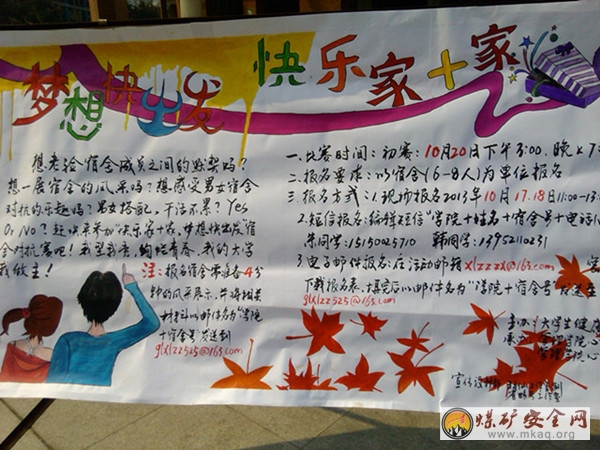 梦想快出发 快乐家十家
想考验宿舍成员之间的默契吗?
想一展宿舍的风采吗?想感受男女宿舍
对抗的乐趣吗?男女搭配,干活不累?Yes
Or No?赶快来参加“快乐家十家,梦想快出发”宿
舍对抗赛吧!我型我秀,绚烂青春,我的大学
我做主!
注:报名宿舍需准备4分
钟的风采展示,并将相关
材料以邮件名为“学院
十宿舍号”发送到
glxlzz525@163.com
一.比赛时间:初赛:10月20日下午3:00,晚
二.报名要求:以宿舍(6-8人)为单位报名
三.报名方式:1.现场报名2013年10月17.18日11:00-13:
2.短信报名:编辑短信“学院十姓名十宿舍号十电话
朱同学:15150025710 韩同学:13952110231
3.电子邮件报名:在活动邮箱xlzzzx@163.com
下载报名表,填完后以邮件名为“学院十宿舍号”发送至
glxlzz525@163.com
主办:大学生健
承办:管理学院心
管理学院心
宣传设计部
煤矿安全网
www.mkaq.org